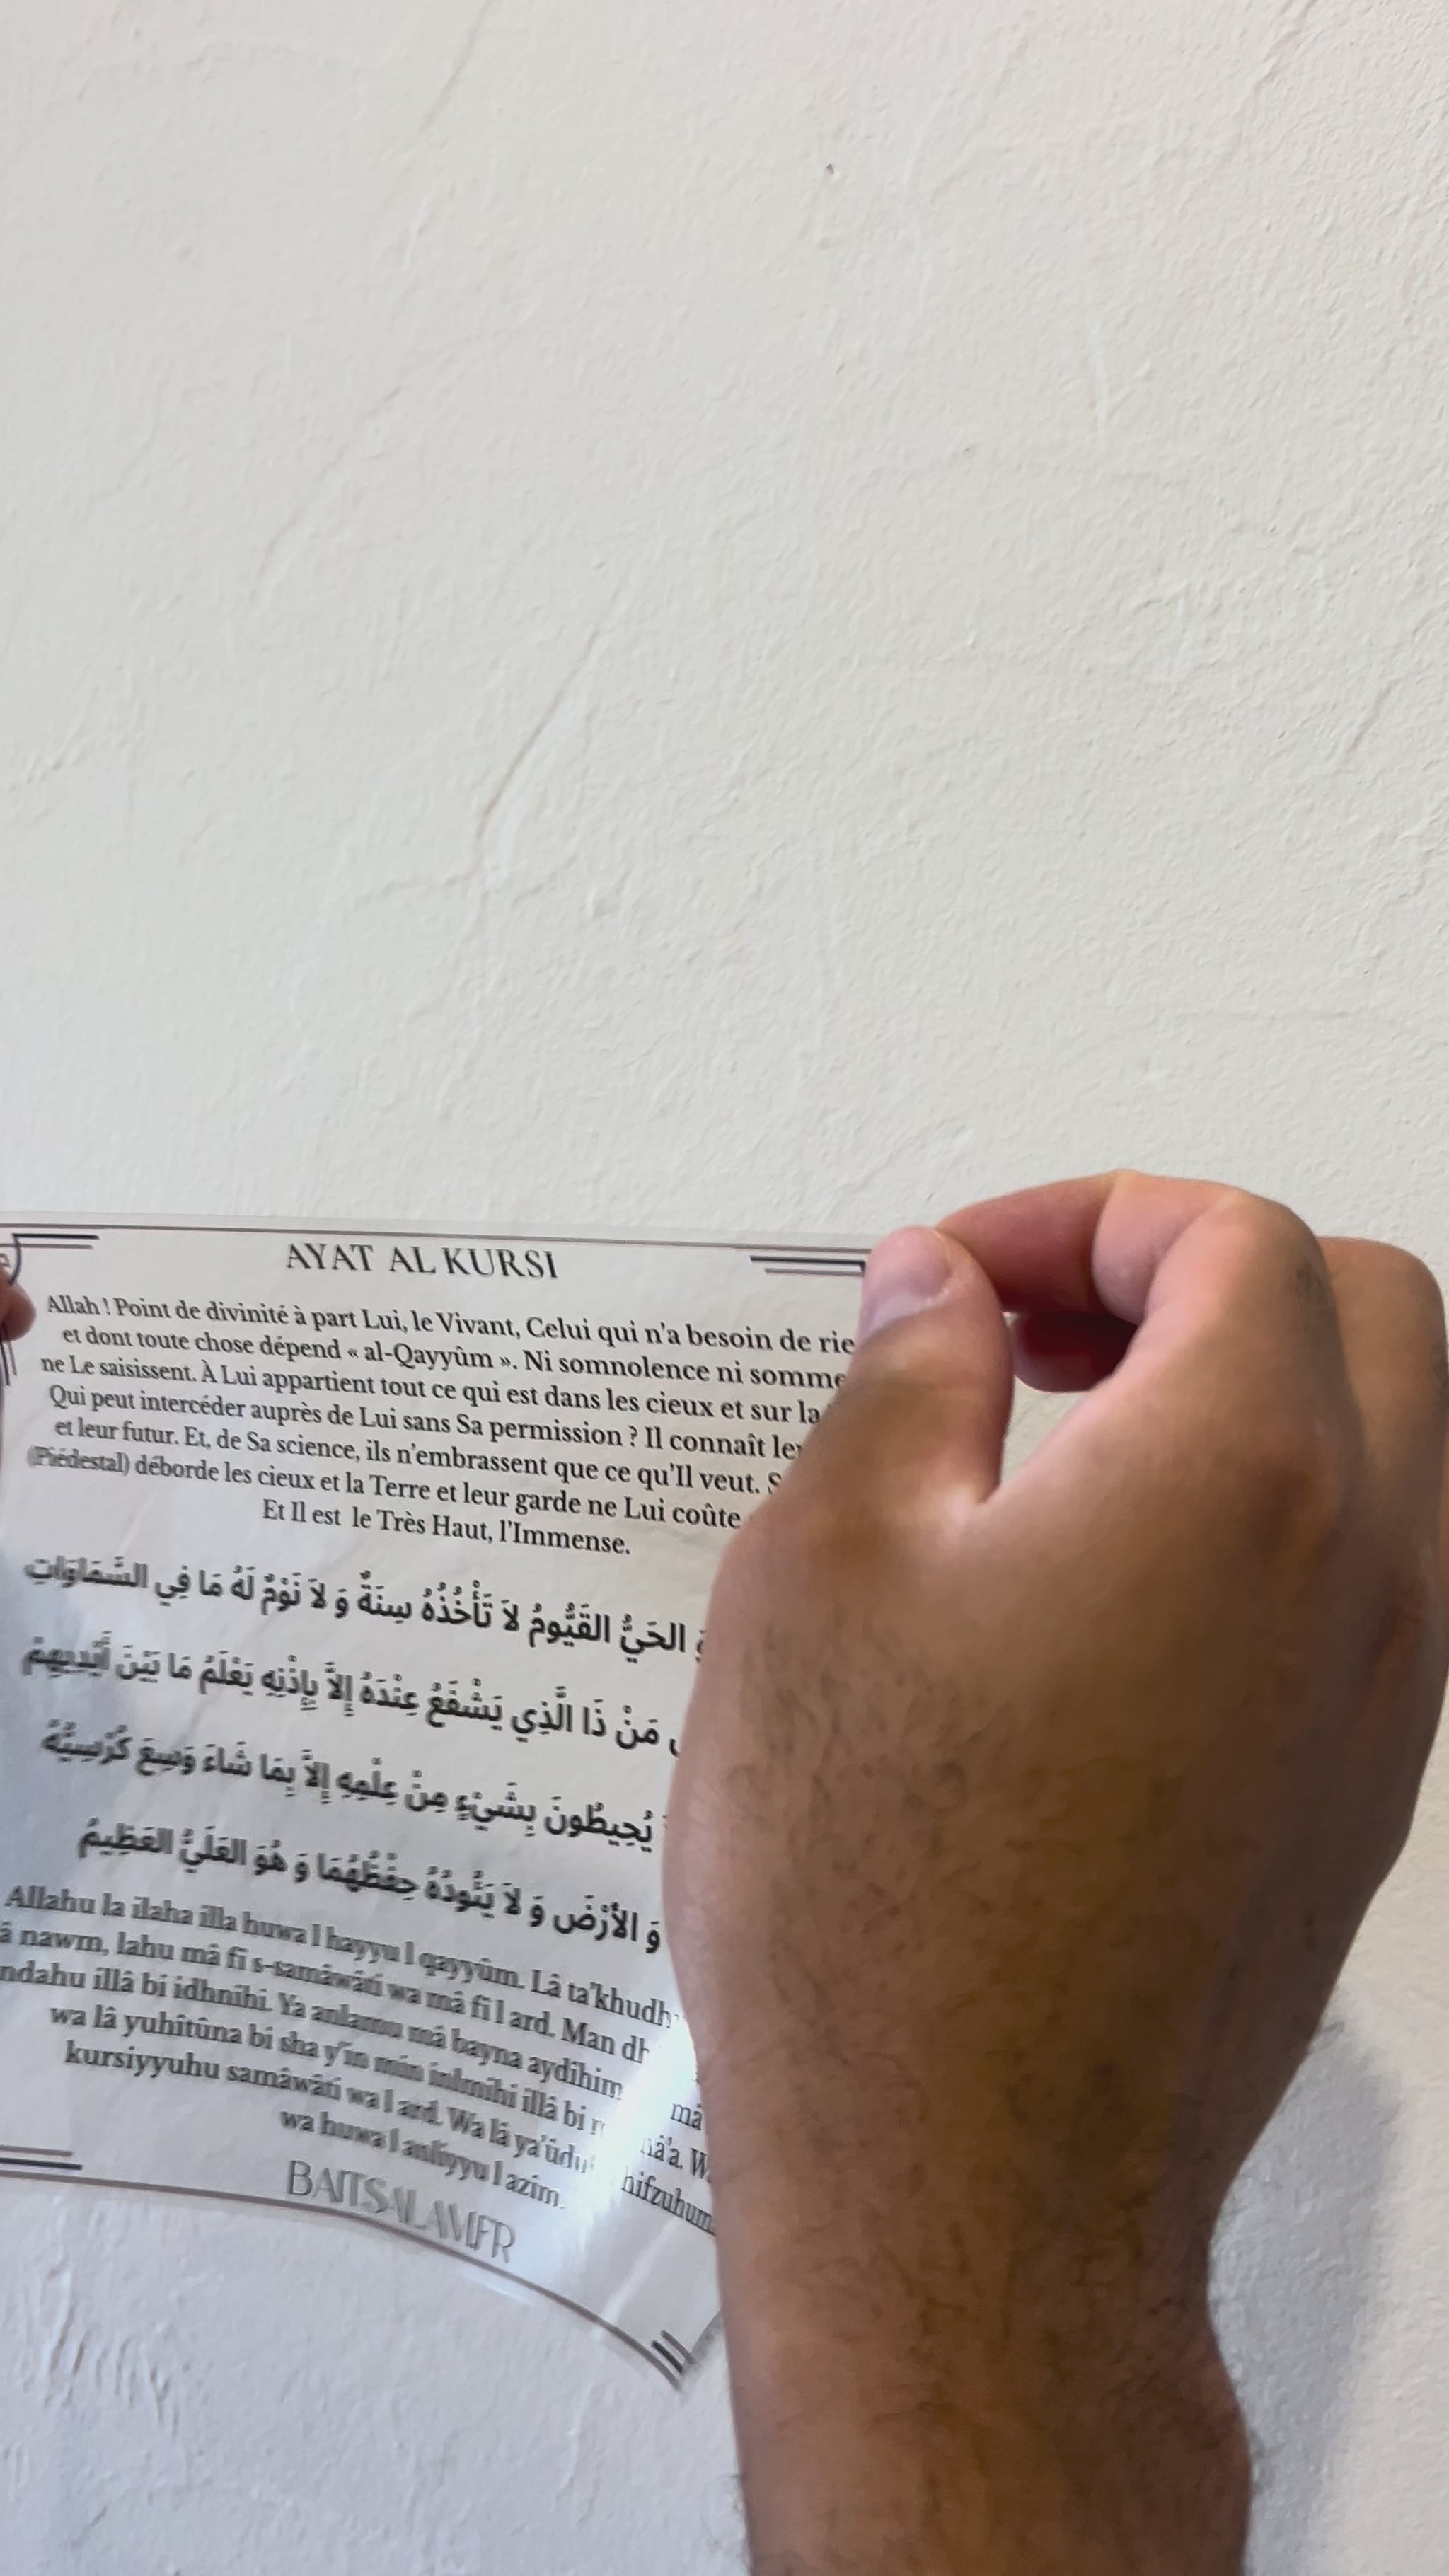 AYAT AL KURSI
Allah ! Point de divinité à part Lui, le Vivant, Celui qui n'a besoin de rie
et dont toute chose dépend « al-Qayyûm ». Ni somnolence ni somme
ne Le saisissent. À Lui appartient tout ce qui est dans les cieux et sur la
Qui peut intercéder auprès de Lui sans Sa permission ? Il connaît le
et leur futur. Et, de Sa science, ils n'embrassent que ce qu'Il veut. S
(Piédestal) déborde les cieux et la Terre et leur garde ne Lui coûte
Et Il est le Très Haut, l'Immense.
الحَيُّ القَيُّومُ لاَ تَأْخُذُهُ سِنَةٌ وَ لاَ نَوْمٌ لَهُ مَا فِي السَّمَاوَاتِ
مَنْ ذَا الَّذِي يَشْفَعُ عِنْدَهُ إِلاَّ بِإِذْنِهِ يَعْلَمُ مَا بَيْنَ أَيْدِيهِمْ
يُحِيطُونَ بِشَيْءٍ مِنْ عِلْمِهِ إِلاَّ بِمَا شَاءَ وَسِعَ كُرْسِيُّهُ
وَ الأَرْضَ وَ لاَ يَئُودُهُ حِفْظُهُمَا وَ هُوَ العَلَيُّ العَظِيمُ
Allahu la ilaha illa huwa l hayyu l qayyûm. Lâ ta'khudh
â nawm, lahu mâ fi s-samâwâti wa mâ fi l ard. Man dh
ndahu illâ bi idhnihi. Ya anlamu mâ bayna aydîhim mâ
wa lâ yuhitûna bi sha y'in min inlmihi illâ bi nâ'a. W
kursiyyuhu samâwâti wa l ard. Wa lâ ya'ûdu hifzuhum
wa huwa l anliyyu l azim.
BAITSALAM.FR